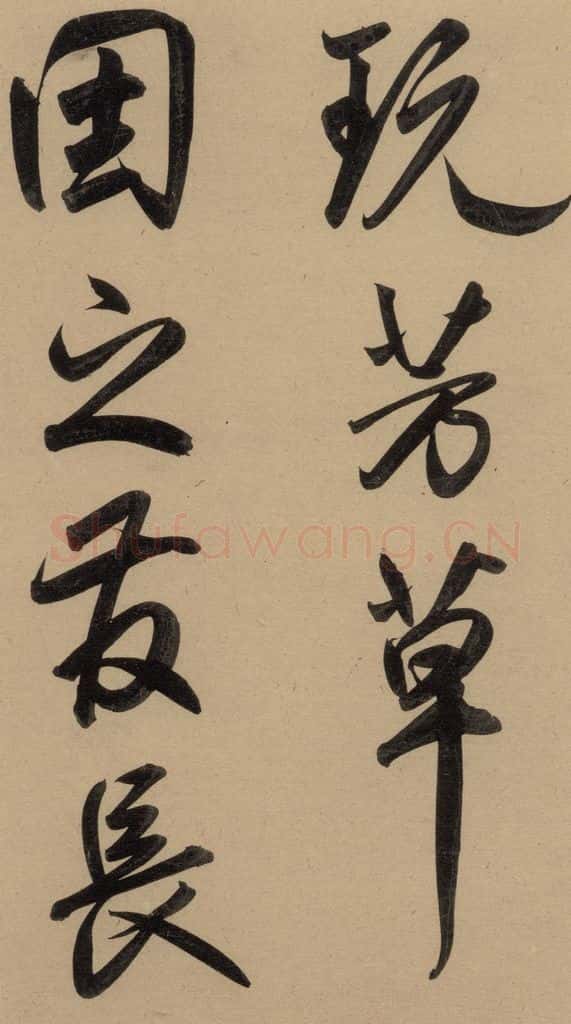 玩芳草
因之發長
Shufawang.CN